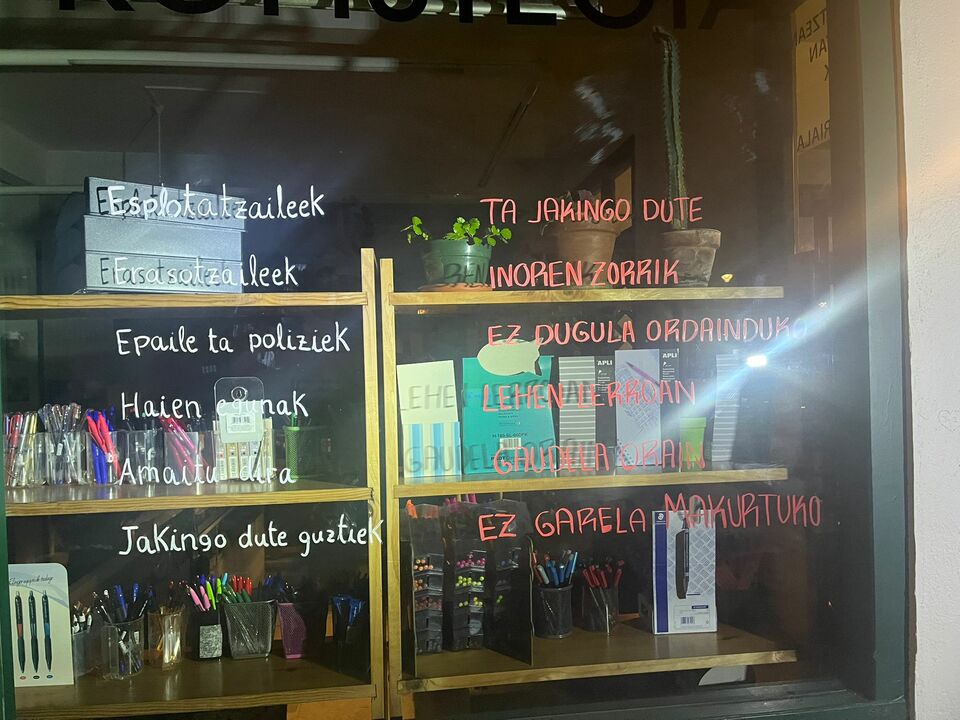 KOPISTEGIA
Esplotatzaileek
Faxistazaileek
Epaile ta poliziek
Haien egunak
Amaitu dira
Jakingo dute guztiek
TA JAKINGO DUTE
INOREN ZORRIK
EZ DUGULA ORDAINDUKO
LEHEN LERROAN
GAUDELA ORAIN
EZ GARELA MAKURTUKO
APLI
APLI